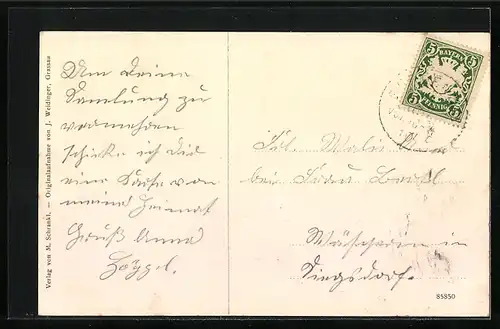 Um deine
Samlung zu
vermehren
schicke ich dir
eine Karte von
meine Heimat
Gruß Anna
Verlag von M. Schrankl. — Originalaufnahme von J. Weidinger, Grassau
BAYERN
5 5
5 5
PFENNIG
Frl.
bei Frau
in
Siegsdorf.
85350